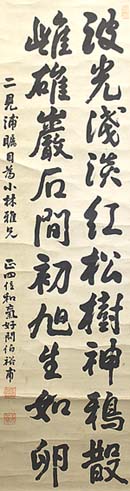 波光淺淡紅松樹神鴉散
雌雄巖石間初旭生如卵
二見浦矚目為小林雅兄
正四位和氣好問伯裕甫